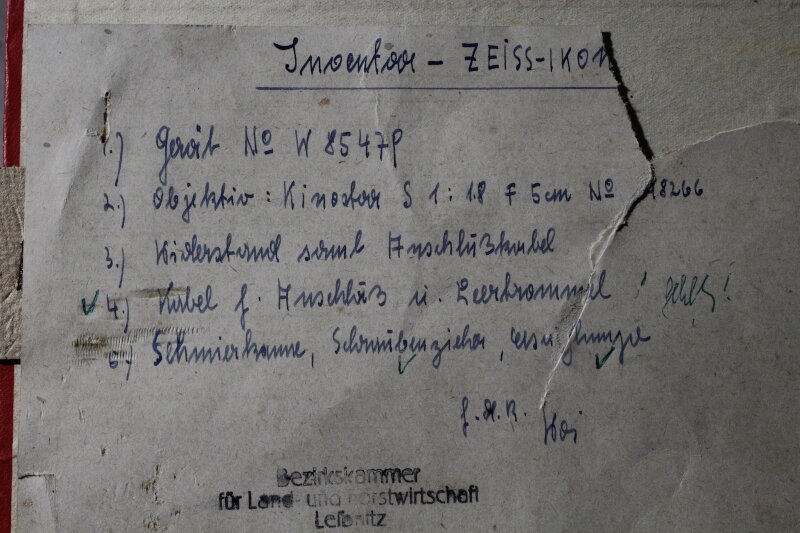 Inventar - ZEISS-IKON
1.) Gerät No W 85479
2.) Objektiv: Kinostar S 1:1.8 F 5cm No 18266
3.) Widerstand samt Anschlußkabel
4.) Kabel f. Anschluß u. Leertrommel ! fehlt!
5.) Schmierkanne, Schraubenzieher,
f.d.R.
Bezirkskammer
für Land- und Forstwirtschaft
Leibnitz